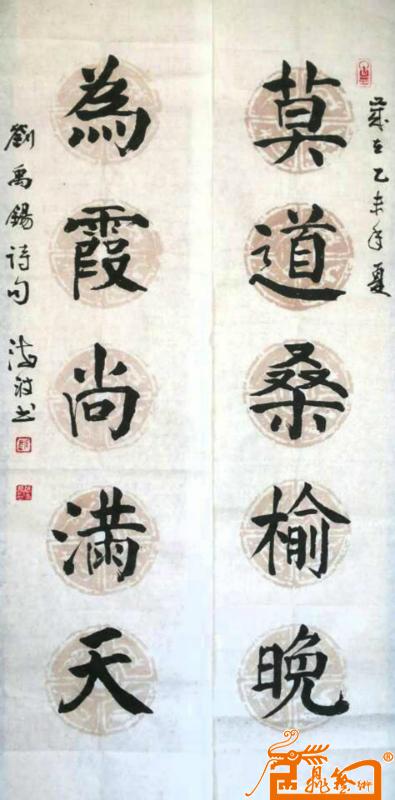 莫道桑榆晚
歲在乙未年夏
為霞尚滿天
劉禹錫詩句 海波書